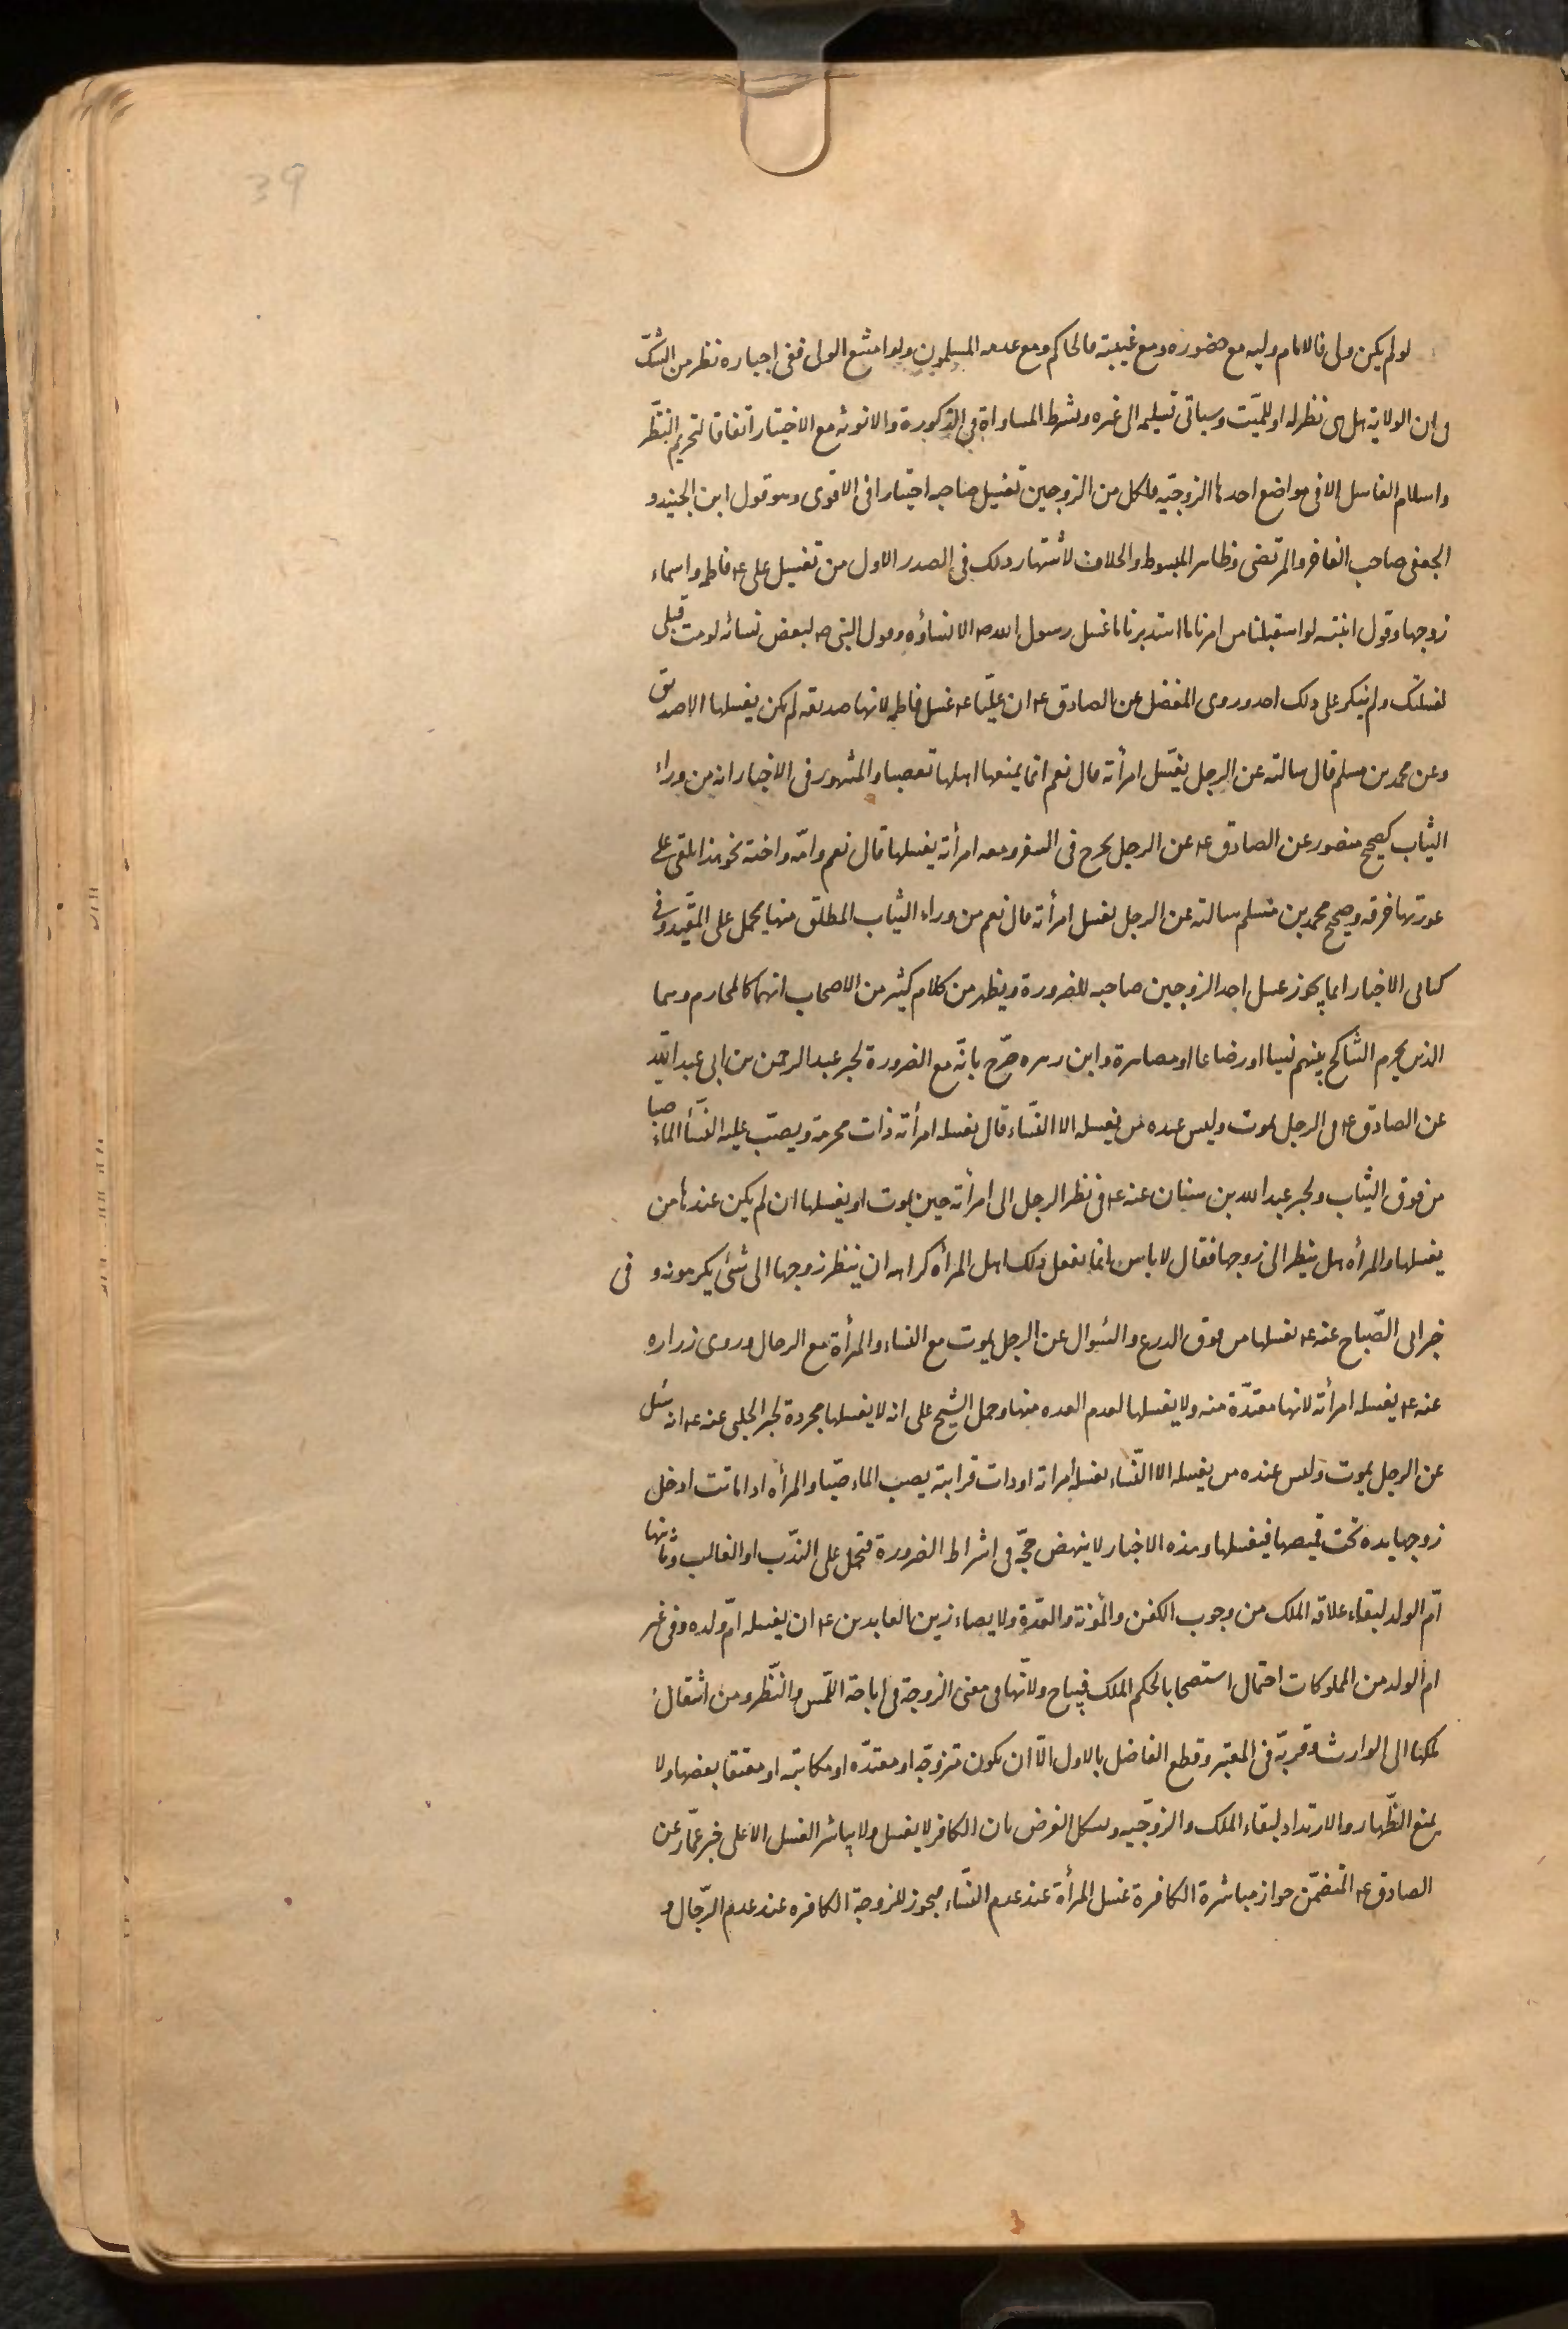 39
لو لم يكن ولى فالامام وليه مع حضوره ومع غيبته فالحاكم ومع عدمه المسلمون ولو امتنع الولى ففى اجباره نظر من الشكّ
فى ان الولاية هل هى نظر له او للميّت وسياتى تسليمه الى غيره ويشترط المساواة فى الذكورة والانوثه مع الاختيار اتفاقا لتحريم النظّر
واسلام الغاسل الا فى مواضع احدها الزوجيّه فلكل من الزوجين تغسيل صاحبه اختيارا فى الاقوى وهو قول ابن الجنيد و
الجعفى صاحب الفاخر والمرتضى وظاهر المبسوط والخلاف لأشتهار ذلك فى الصدر الاول من تغسيل على ع فاطمه واسماء
زوجها وقول لو استقبلنا من امرنا ما استدبرنا ما غسل رسول الله ص الا نساؤه وقول النبى ص لبعض نسائه لو مت قبلى
لغسلتك ولم ينكر على ذلك احد وروى المفضل عن الصادق ع ان عليّا ع غسل فاطمه لانها صديقه لم يكن يغسلها الا صديق
وعن محمد بن مسلم قال سالته عن الرجل يغسّل امرأته قال نعم انما يمنعها اهلها تعصبا والمشهور فى الاخبار انه من وراء
الثياب كصحيح منصور عن الصادق ع عن الرجل يخرج فى السفر ومعه امرأته يغسلها قال نعم وامّه واخته نحو هذا يلقى على
عورتها خرقه وصحيح محمد بن مسلم سالته عن الرجل يغسل امرأته قال نعم من وراء الثياب المطلق منها يحمل على المقيّد وفى
كتابى الاخبار انما يجوز غسل احد الزوجين صاحبه للضرورة ويظهر من كلام كثير من الاصحاب انهما كالمحارم وهما
الذين يحرم التناكح بينهم نسبا او رضاعا او مصاهرة وابن زهره صرّح بانّه مع الضرورة لخبر عبد الرحمن بن ابى عبد الله
عن الصادق ع فى الرجل يموت وليس عنده من يغسله الا النساء قال يغسله امرأته ذات محرمة ويصبّ عليه النساء الماء صبا
من فوق الثياب ولخبر عبد الله بن سنان عنه ع فى نظر الرجل الى امرأته حين يموت او يغسلها ان لم يكن عندها من
يغسلها والمرأه هل ينظر الى زوجها فقال لا باس انما يفعل ذلك اهل المرأه كراهه ان ينظر زوجها الى شئ يكرهونه و فى
خبر ابى الصّباح عنه ع يغسلها من فوق الدرع والسؤال عن الرجل يموت مع النساء والمرأة مع الرجال وروى زراره
عنه ع يغسله امرأته لانها معتدّة منه ولا يغسلها لعدم العده منها وحمل الشيخ على انه لا يغسلها مجردة لخبر الحلبى عنه ع انه سئل
عن الرجل يموت وليس عنده من يغسله الا النّساء يغسله امراته او ذات قرابته يصب الماء صبّا والمرأه اذا ماتت ادخل
زوجها يده تحت قميصها فيغسلها وهذه الاخبار لا ينهض حجّه فى اشراط الضرورة فتحمل على النّدب او الغالب وثانيها
امّ الولد لبقاء علاقه الملك من وجوب الكفن والمؤنة والعدّة ولايصاء زين العابدين ع ان يغسله امّ ولده وفى غير
ام الولد من المملوكات احتمال استصحابا لحكم الملك فيباح ولانّها فى معنى الزوجة فى اباحة اللّمس والنّظر ومن انتقال
ملكها الى الوارث وقربّه فى المعتبر وقطع الفاضل بالاول الّا ان يكون متزوجّه او معتدّه او مكاتبة او معتقا بعضها ولا
يمنع الظّهار والارتداد لبقاء الملك والزوجّيه ويشكل الفرض بان الكافر لا يغسل ولا يباشر الغسل الا على خبر عمّار عن
الصادق ع المتضمّن جواز مباشرة الكافرة غسل المرأة عند عدم النساء فيجوز للزوجة الكافره عند عدم الرّجال و